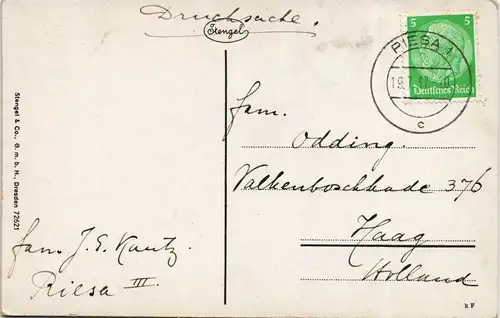 Drucksache.
Stengel
5 5
Deutsches Reich
RIESA 1
c
Stengel & Co., G. m. b. H., Dresden 72621
Fam.
Odding.
Valkenboschkade 376
Haag
Holland
Fam J. E. Kautz.
Riesa III.
k F